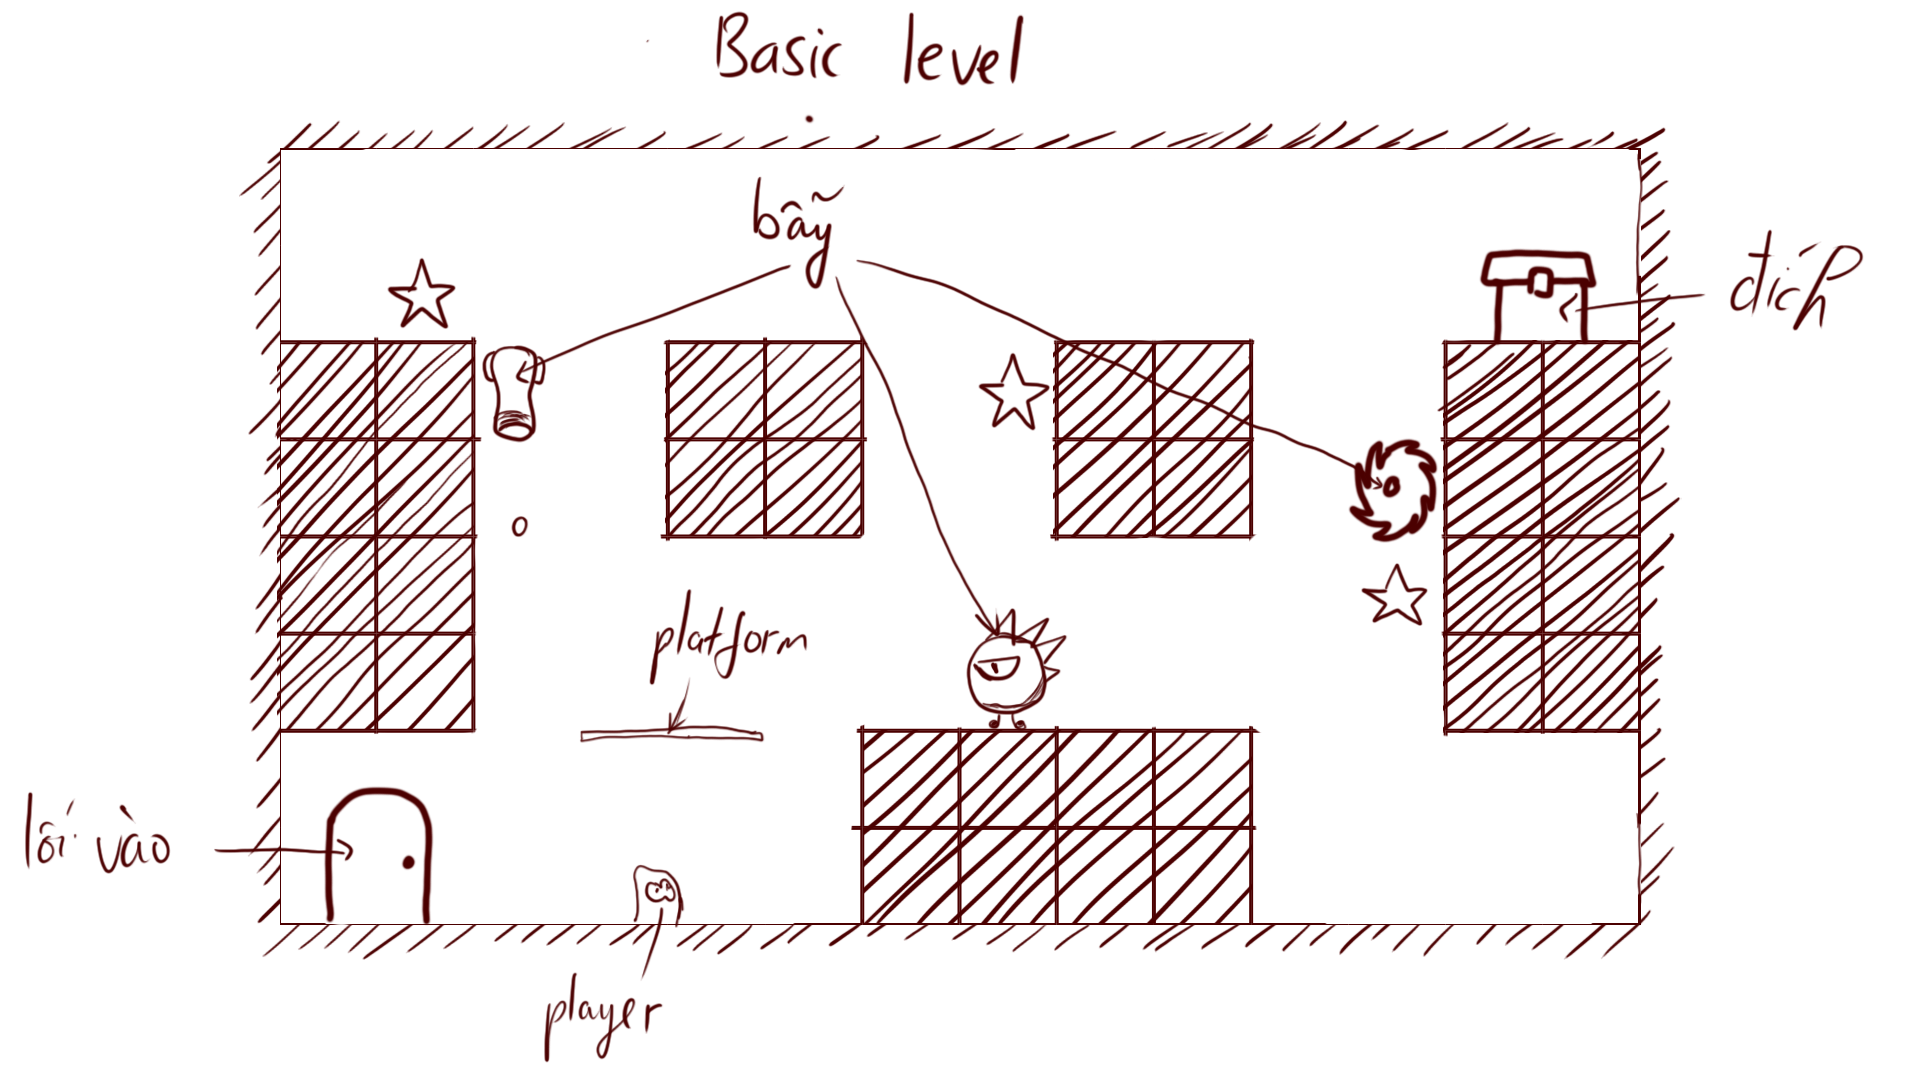 Basic level
bẫy
đích
platform
lối vào
player